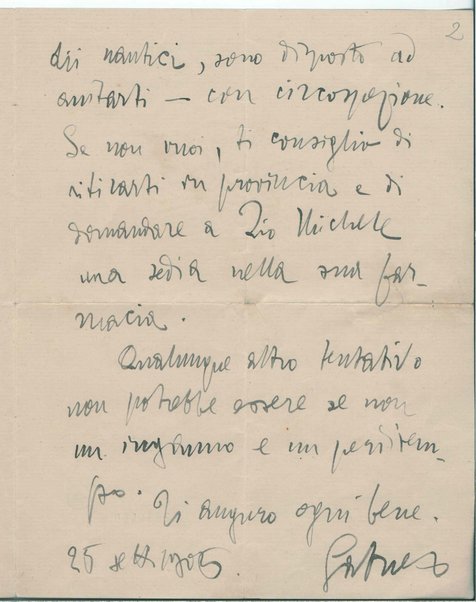 2
dei nautici, sono disposto ad
aiutarti — con circospezione.
Se non vuoi, ti consiglio di
ritirarti in provincia e di
domandare a Zio Michele
una sedia nella sua far-
macia.
Qualunque altro tentativo
non potrebbe essere se non
un inganno e un perditem-
po. Ti auguro ogni bene.
25 sett.